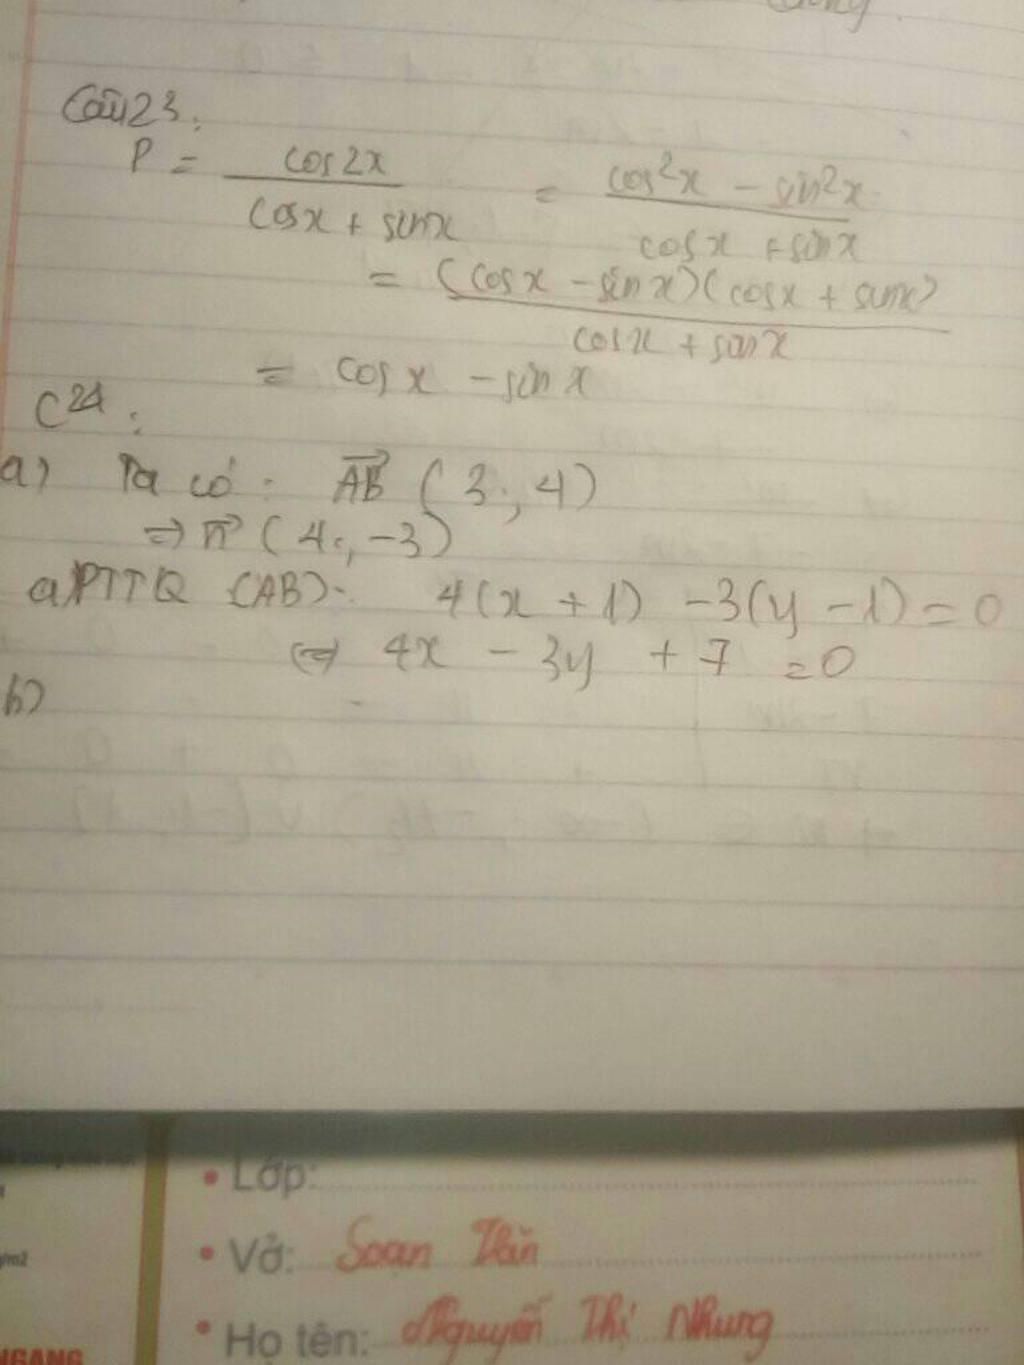 Câu 23:
P = cos2x / cosx + sinx = cos²x - sin²x / cosx + sinx
= (cosx - sinx)(cosx + sinx) / cosx + sinx
= cosx - sinx
C24:
a) Ta có: AB⃗ (3; 4)
=> n⃗ (4; -3)
a) PTTQ (AB): 4(x + 1) - 3(y - 1) = 0
<=> 4x - 3y + 7 = 0
b)
• Lớp:
• Vở: Soạn Văn
• Họ tên: Nguyễn Thị Nhung
NGANG